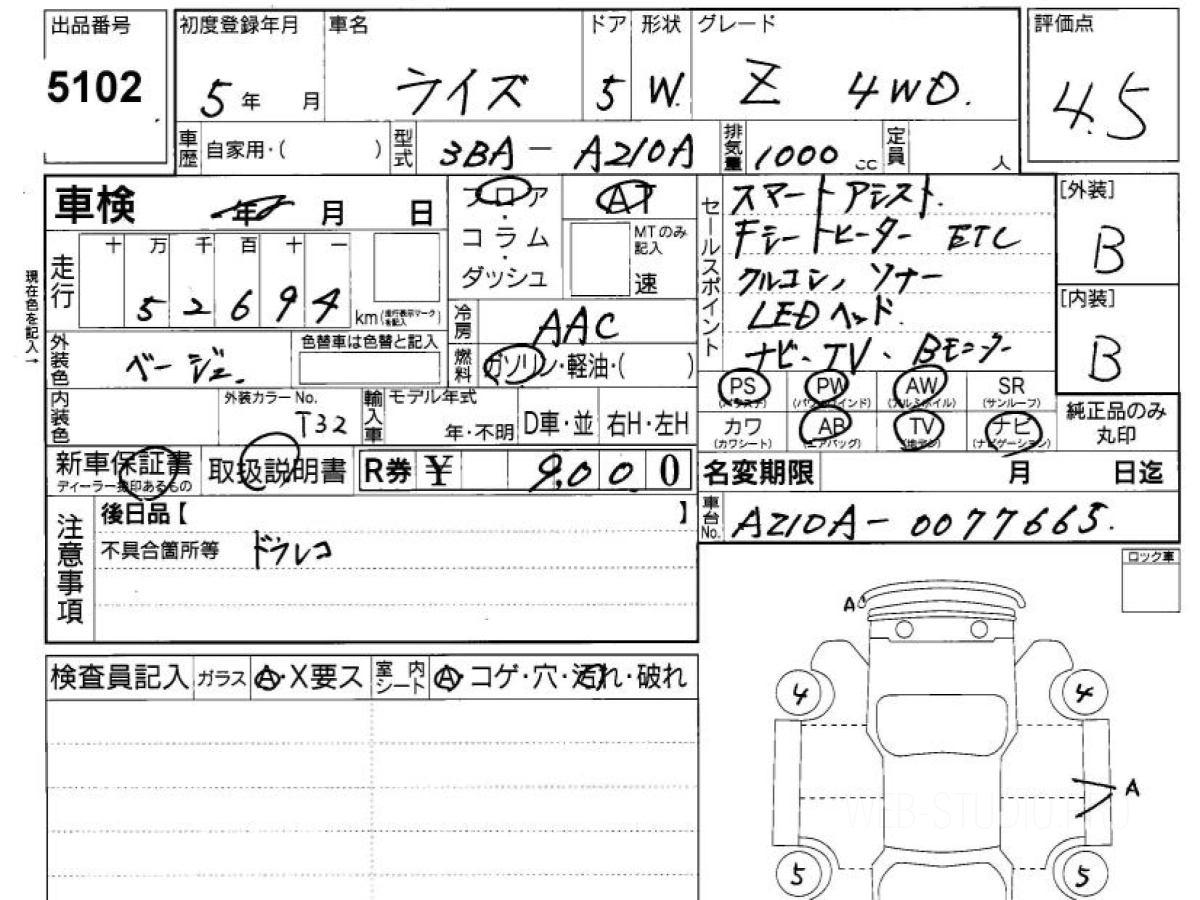 出品番号
5102
初度登録年月 車名 ドア 形状 グレード
5年 月 ライズ 5 W. Z 4WD.
評価点
4.5
車歴 自家用・( ) 型式 3BA-A210A 排気量 1000cc 定員 人
車検 年 月 日
フロア・コラム・ダッシュ
AT
MTのみ記入
速
セールスポイント
スマートアシスト.
Fシートヒーター ETC
クルコン, ソナー
LEDヘッド.
ナビ・TV、Bモニター
[外装]
B
[内装]
B
現在色を記入→
走行 十 万 千 百 十 一
52694 km(走行表示マークを記入)
冷房 AAC
燃料 ガソリン・軽油・( )
外装色 ベージュ.
色替車は色替と記入
内装色
外装カラーNo.
T32
輸入車 モデル年式
年・不明 D車・並 右H・左H
PS (パワステ) PW (パワーウインド) AW (アルミホイル) SR (サンルーフ)
カワ (カワシート) AB (エアバッグ) TV (地デジ) ナビ (ナビゲーション)
純正品のみ丸印
新車保証書
ディーラー捺印あるもの
取扱説明書
R券 ¥ 9,000
名変期限 月 日迄
車台No. A210A-0077665.
注意事項
後日品【 】
不具合箇所等 ドラレコ
ロック車
検査員記入 ガラス A・X要ス 室内シート A・コゲ・穴・汚れ・破れ
A
4 4
A
5 5
WEB-STUDIO.PRO